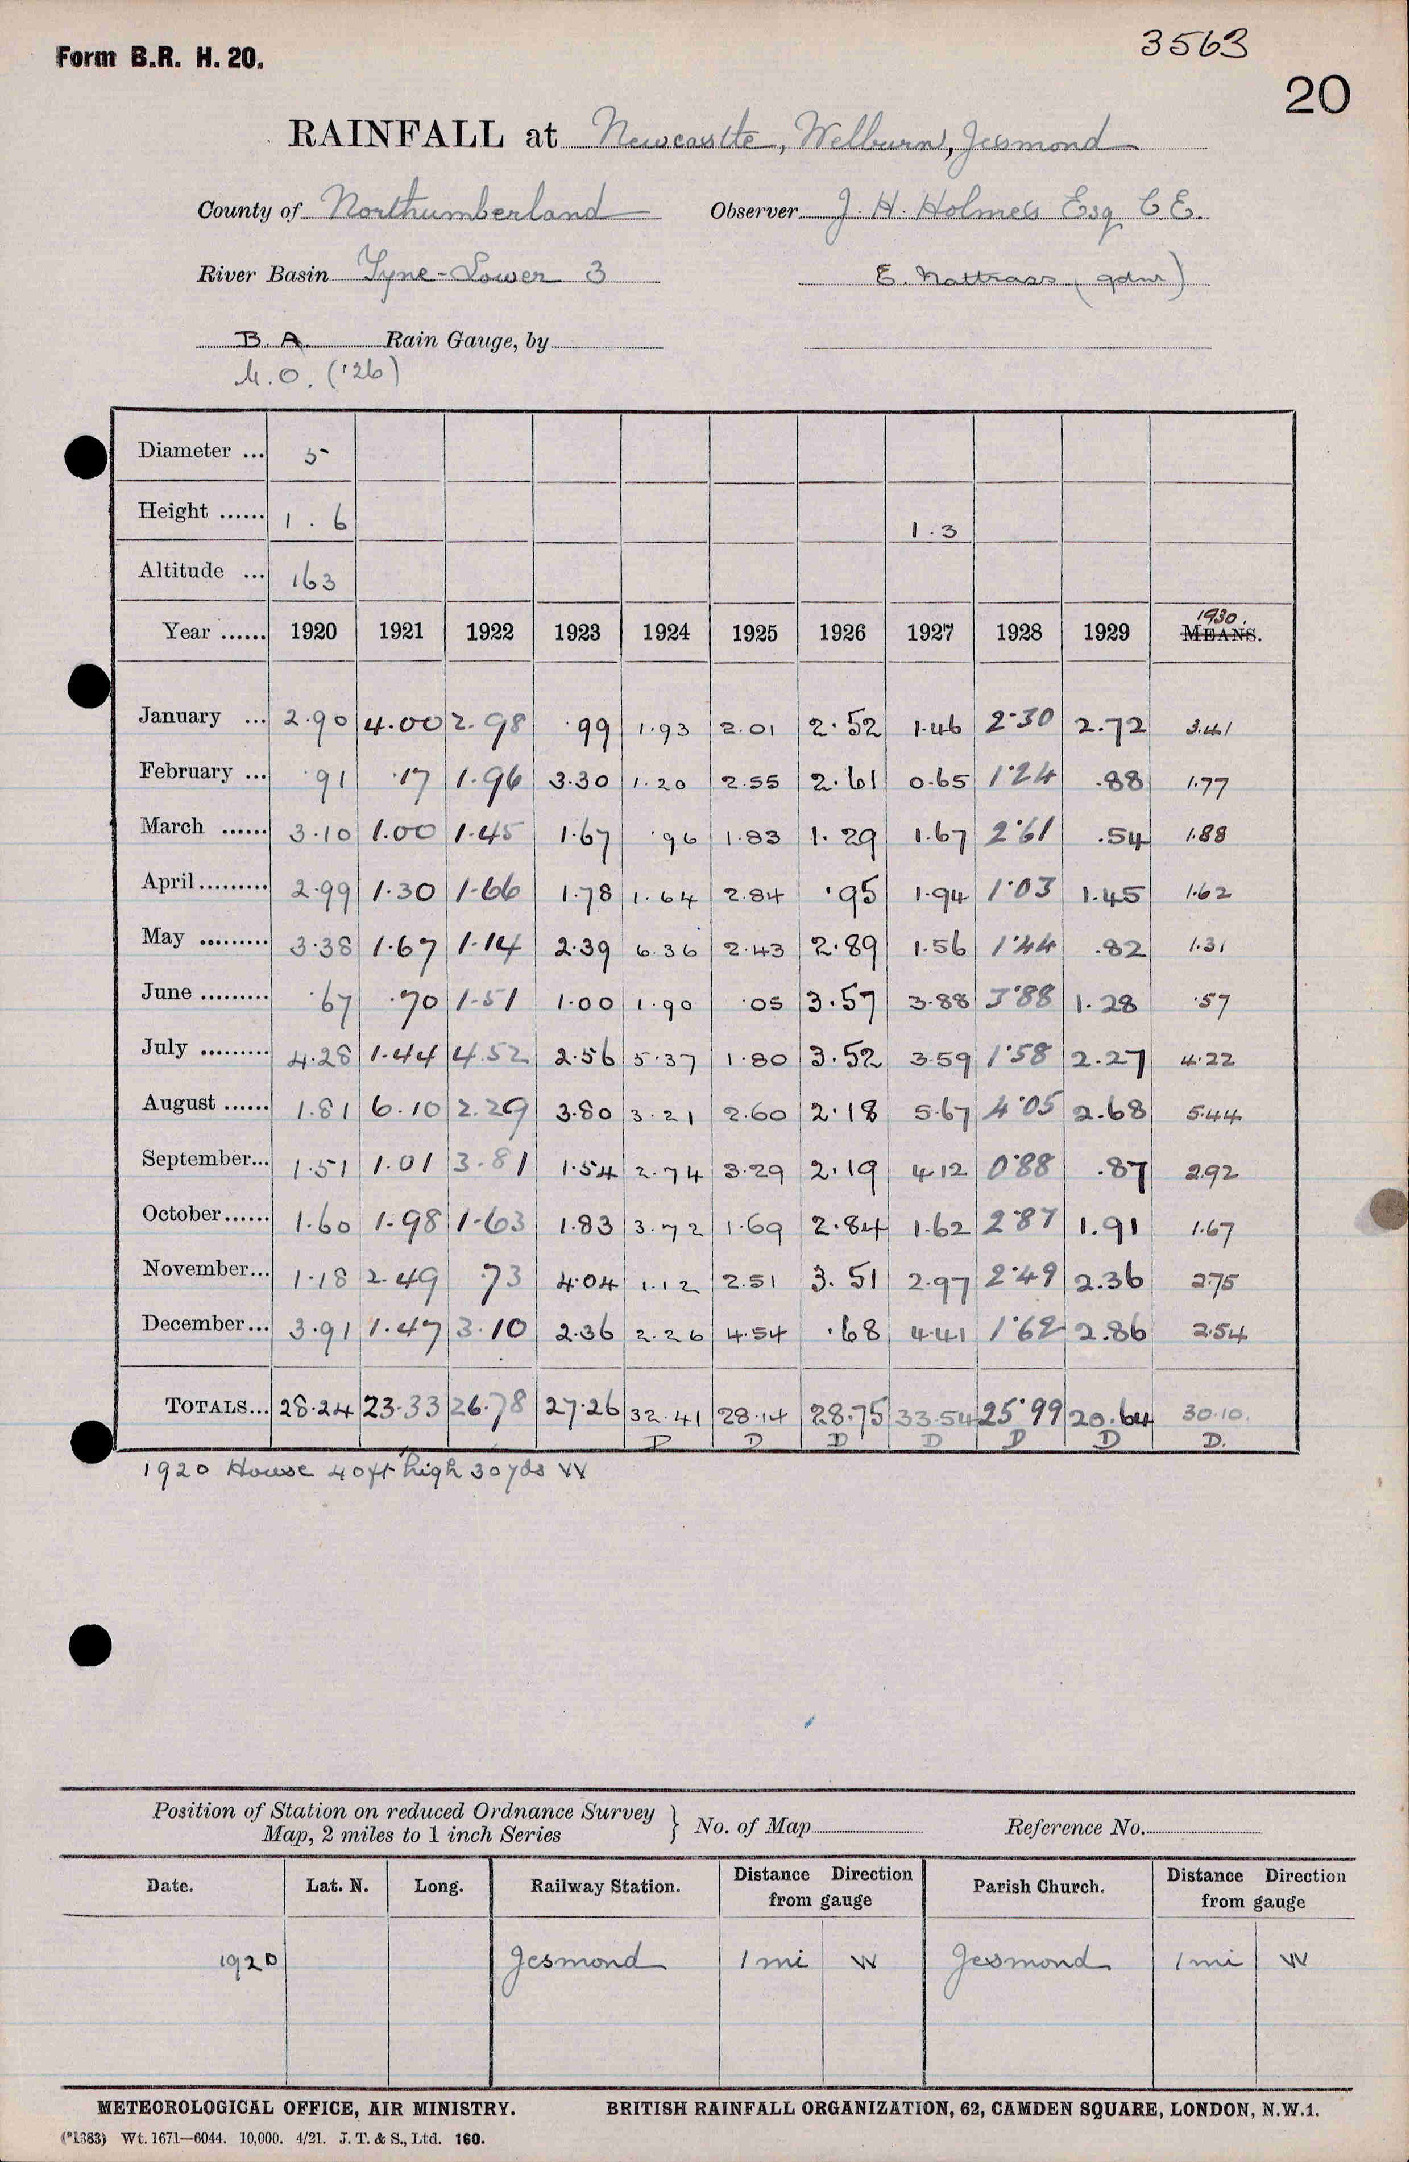 Form B.R. H. 20.
3563
20
RAINFALL at Newcastle, Welburn, Jesmond
County of Northumberland Observer J. H. Holmes Esq C.E.
River Basin Tyne-Lower 3 E. Nattrass (gdnr)
B. A. Rain Gauge, by
M.O. ('26)
Diameter ... 5
Height ...... 1.6 1.3
Altitude ... 163
Year ...... 1920 1921 1922 1923 1924 1925 1926 1927 1928 1929 1930. MEANS.
January ... 2.90 4.00 2.98 .99 1.93 2.01 2.52 1.46 2.30 2.72 3.41
February ... .91 .17 1.96 3.30 1.20 2.55 2.61 0.65 1.24 .88 1.77
March ...... 3.10 1.00 1.45 1.67 .96 1.83 1.29 1.67 2.61 .54 1.88
April ......... 2.99 1.30 1.66 1.78 1.64 2.84 .95 1.94 1.03 1.45 1.62
May ......... 3.38 1.67 1.14 2.39 6.36 2.43 2.89 1.56 1.44 .82 1.31
June ......... .67 .70 1.51 1.00 1.90 .05 3.57 3.88 3.88 1.28 .57
July ......... 4.28 1.44 4.52 2.56 5.37 1.80 3.52 3.59 1.58 2.27 4.22
August ...... 1.81 6.10 2.29 3.80 3.21 2.60 2.18 5.67 4.05 2.68 5.44
September... 1.51 1.01 3.81 1.54 2.74 3.29 2.19 4.12 0.88 .87 2.92
October...... 1.60 1.98 1.63 1.83 3.72 1.69 2.84 1.62 2.87 1.91 1.67
November... 1.18 2.49 .73 4.04 1.12 2.51 3.51 2.97 2.49 2.36 2.75
December... 3.91 1.47 3.10 2.36 2.26 4.54 .68 4.41 1.62 2.86 2.54
TOTALS... 28.24 23.33 26.78 27.26 32.41 28.14 28.75 33.54 25.99 20.64 30.10.
D D D D D D D.
1920 House 40ft high 30 yds W
Position of Station on reduced Ordnance Survey
Map, 2 miles to 1 inch Series } No. of Map Reference No.
Date. Lat. N. Long. Railway Station. Distance Direction from gauge Parish Church. Distance Direction from gauge
1920 Jesmond 1 mi W Jesmond 1 mi W
METEOROLOGICAL OFFICE, AIR MINISTRY. BRITISH RAINFALL ORGANIZATION, 62, CAMDEN SQUARE, LONDON, N.W.1.
(*1383) Wt. 1671—6044. 10,000. 4/21. J. T. & S., Ltd. 160.